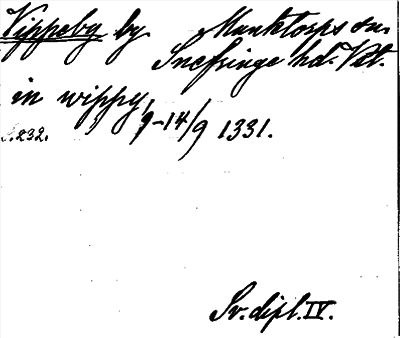 Vippeby by Munktorps sn.
Snefringe hd. Vstl.
in wippy, 9-14/9 1331.
S. 232.
Sv. dipl. IV.